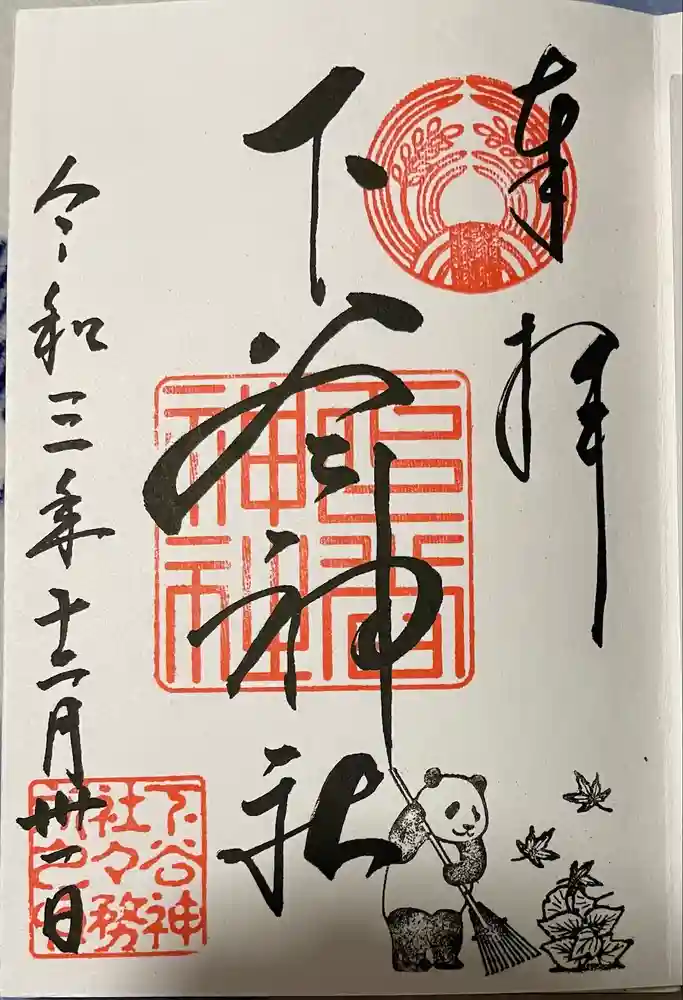 奉拝
下谷神社
令和三年十二月卅一日
下谷
神社
下谷神
社々務
所之印